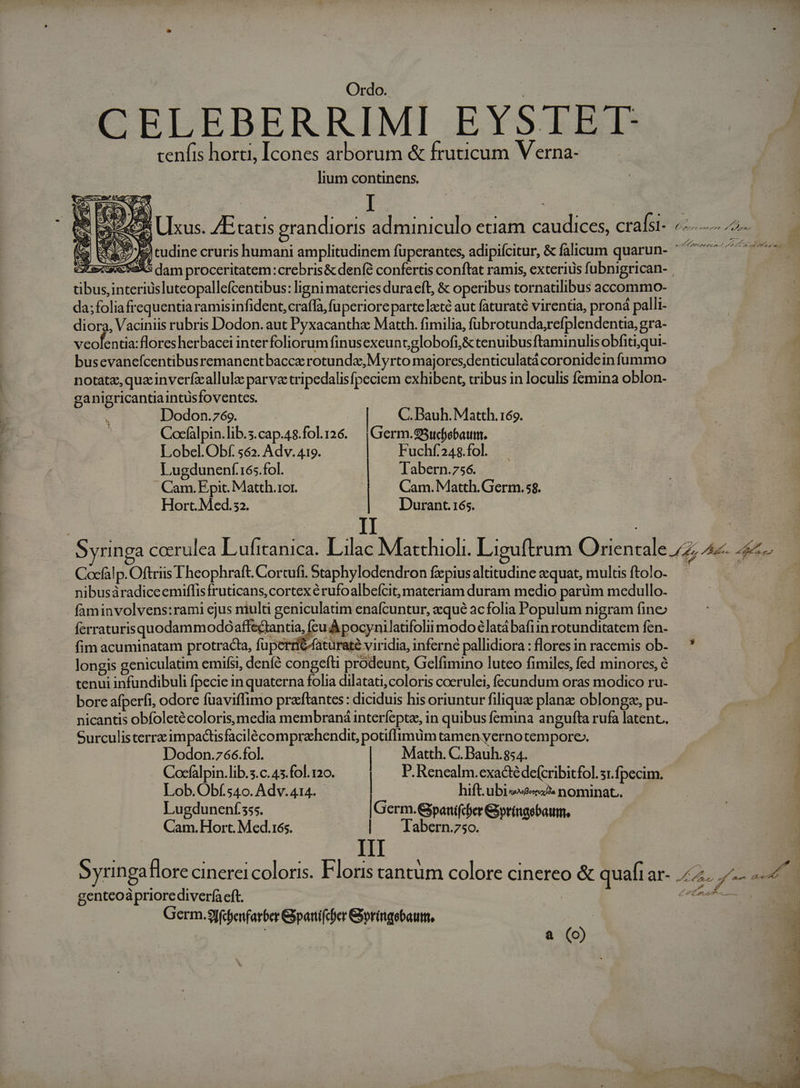 Ordo.
CELEBERRIMI EYSTET-
tenſis horti, Icones arborum & fruticum Verna-
lium continens.
I
BUxus. Ætatis grandioris adminiculo etiam caudices, craſsi-
tudine cruris humani amplitudinem ſuperantes, adipiſcitur, & ſalicum quarun-
dam proceritatem: crebris & denſè confertis conſtat ramis, exteriùs ſubnigrican-
tibus, interiùs luteopalleſcentibus: ligni materies dura eſt, & operibus tornatilibus accommo-
da; folia frequentia ramis inſident, craſſa, ſuperiore parte lætè aut ſaturatè virentia, pronâ palli-
diora, Vaciniis rubris Dodon. aut Pyxacanthæ Matth. ſimilia, ſubrotunda, reſplendentia, gra-
veolentia: flores herbacei inter foliorum ſinus exeunt, globoſi, & tenuibus ſtaminulis obſiti, qui-
bus evaneſcentibus remanent baccæ rotundæ, Myrto majores, denticulatâ coronide in ſummo
notatæ, quæ inverſæ allulæ parvæ tripedalis ſpeciem exhibent, tribus in loculis ſemina oblon-
ga nigricantia intùs foventes.
Dodon. 769. C. Bauh. Matth. 169.
Cœſalpin. lib. 3. cap. 48. fol. 126. Germ. Buchsbaum.
Lobel. Obſ. 562. Adv. 419. Fuchſ. 248. fol.
Lugdunenſ. 165. fol. Tabern. 756.
Cam. Epit. Matth. 101. Cam. Matth. Germ. 58.
Hort. Med. 32. Durant. 165.
II
Syringa cœrulea Luſitanica. Lilac Matthioli. Liguſtrum Orientale
Cœſalp. Oſtriis Theophraſt. Cortuſi. Staphylodendron ſæpius altitudine æquat, multis ſtolo-
nibus à radice emiſſis fruticans, cortex è rufo albeſcit, materiam duram medio parùm medullo-
ſam involvens: rami ejus multi geniculatim enaſcuntur, æquè ac folia Populum nigram ſine
ſerraturis quodammodò affectantia, ſeu Apocyni latifolii modo è latâ baſi in rotunditatem ſen-
ſim acuminatam protracta, ſupernè ſaturatè viridia, infernè pallidiora: flores in racemis ob-
longis geniculatim emiſsi, denſè congeſti prodeunt, Gelſimino luteo ſimiles, ſed minores, è
tenui infundibuli ſpecie in quaterna folia dilatati, coloris cœrulei, ſecundum oras modico ru-
bore aſperſi, odore ſuaviſſimo præſtantes: diciduis his oriuntur ſiliquæ planæ oblongæ, pu-
nicantis obſoletè coloris, media membranâ interſeptæ, in quibus ſemina anguſta rufa latent.
Surculis terræ impactis facilè compræhendit, potiſſimùm tamen verno tempore.
Dodon. 766. fol. Matth. C. Bauh. 854.
Cœſalpin. lib. 3. c. 43. fol. 120. P. Renealm. exactè deſcribit fol. 31. ſpecim.
Lob. Obſ. 540. Adv. 414. hiſt. ubi nominat.
Lugdunenſ. 355. Germ. Spaniſcher Springsbaum.
Cam. Hort. Med. 165. Tabern. 750.
III
Syringa flore cinerei coloris. Floris tantùm colore cinereo & quaſi ar-
genteo à priore diverſa eſt.
Germ. Aſchenfarber Spaniſcher Springsbaum.
a (o)